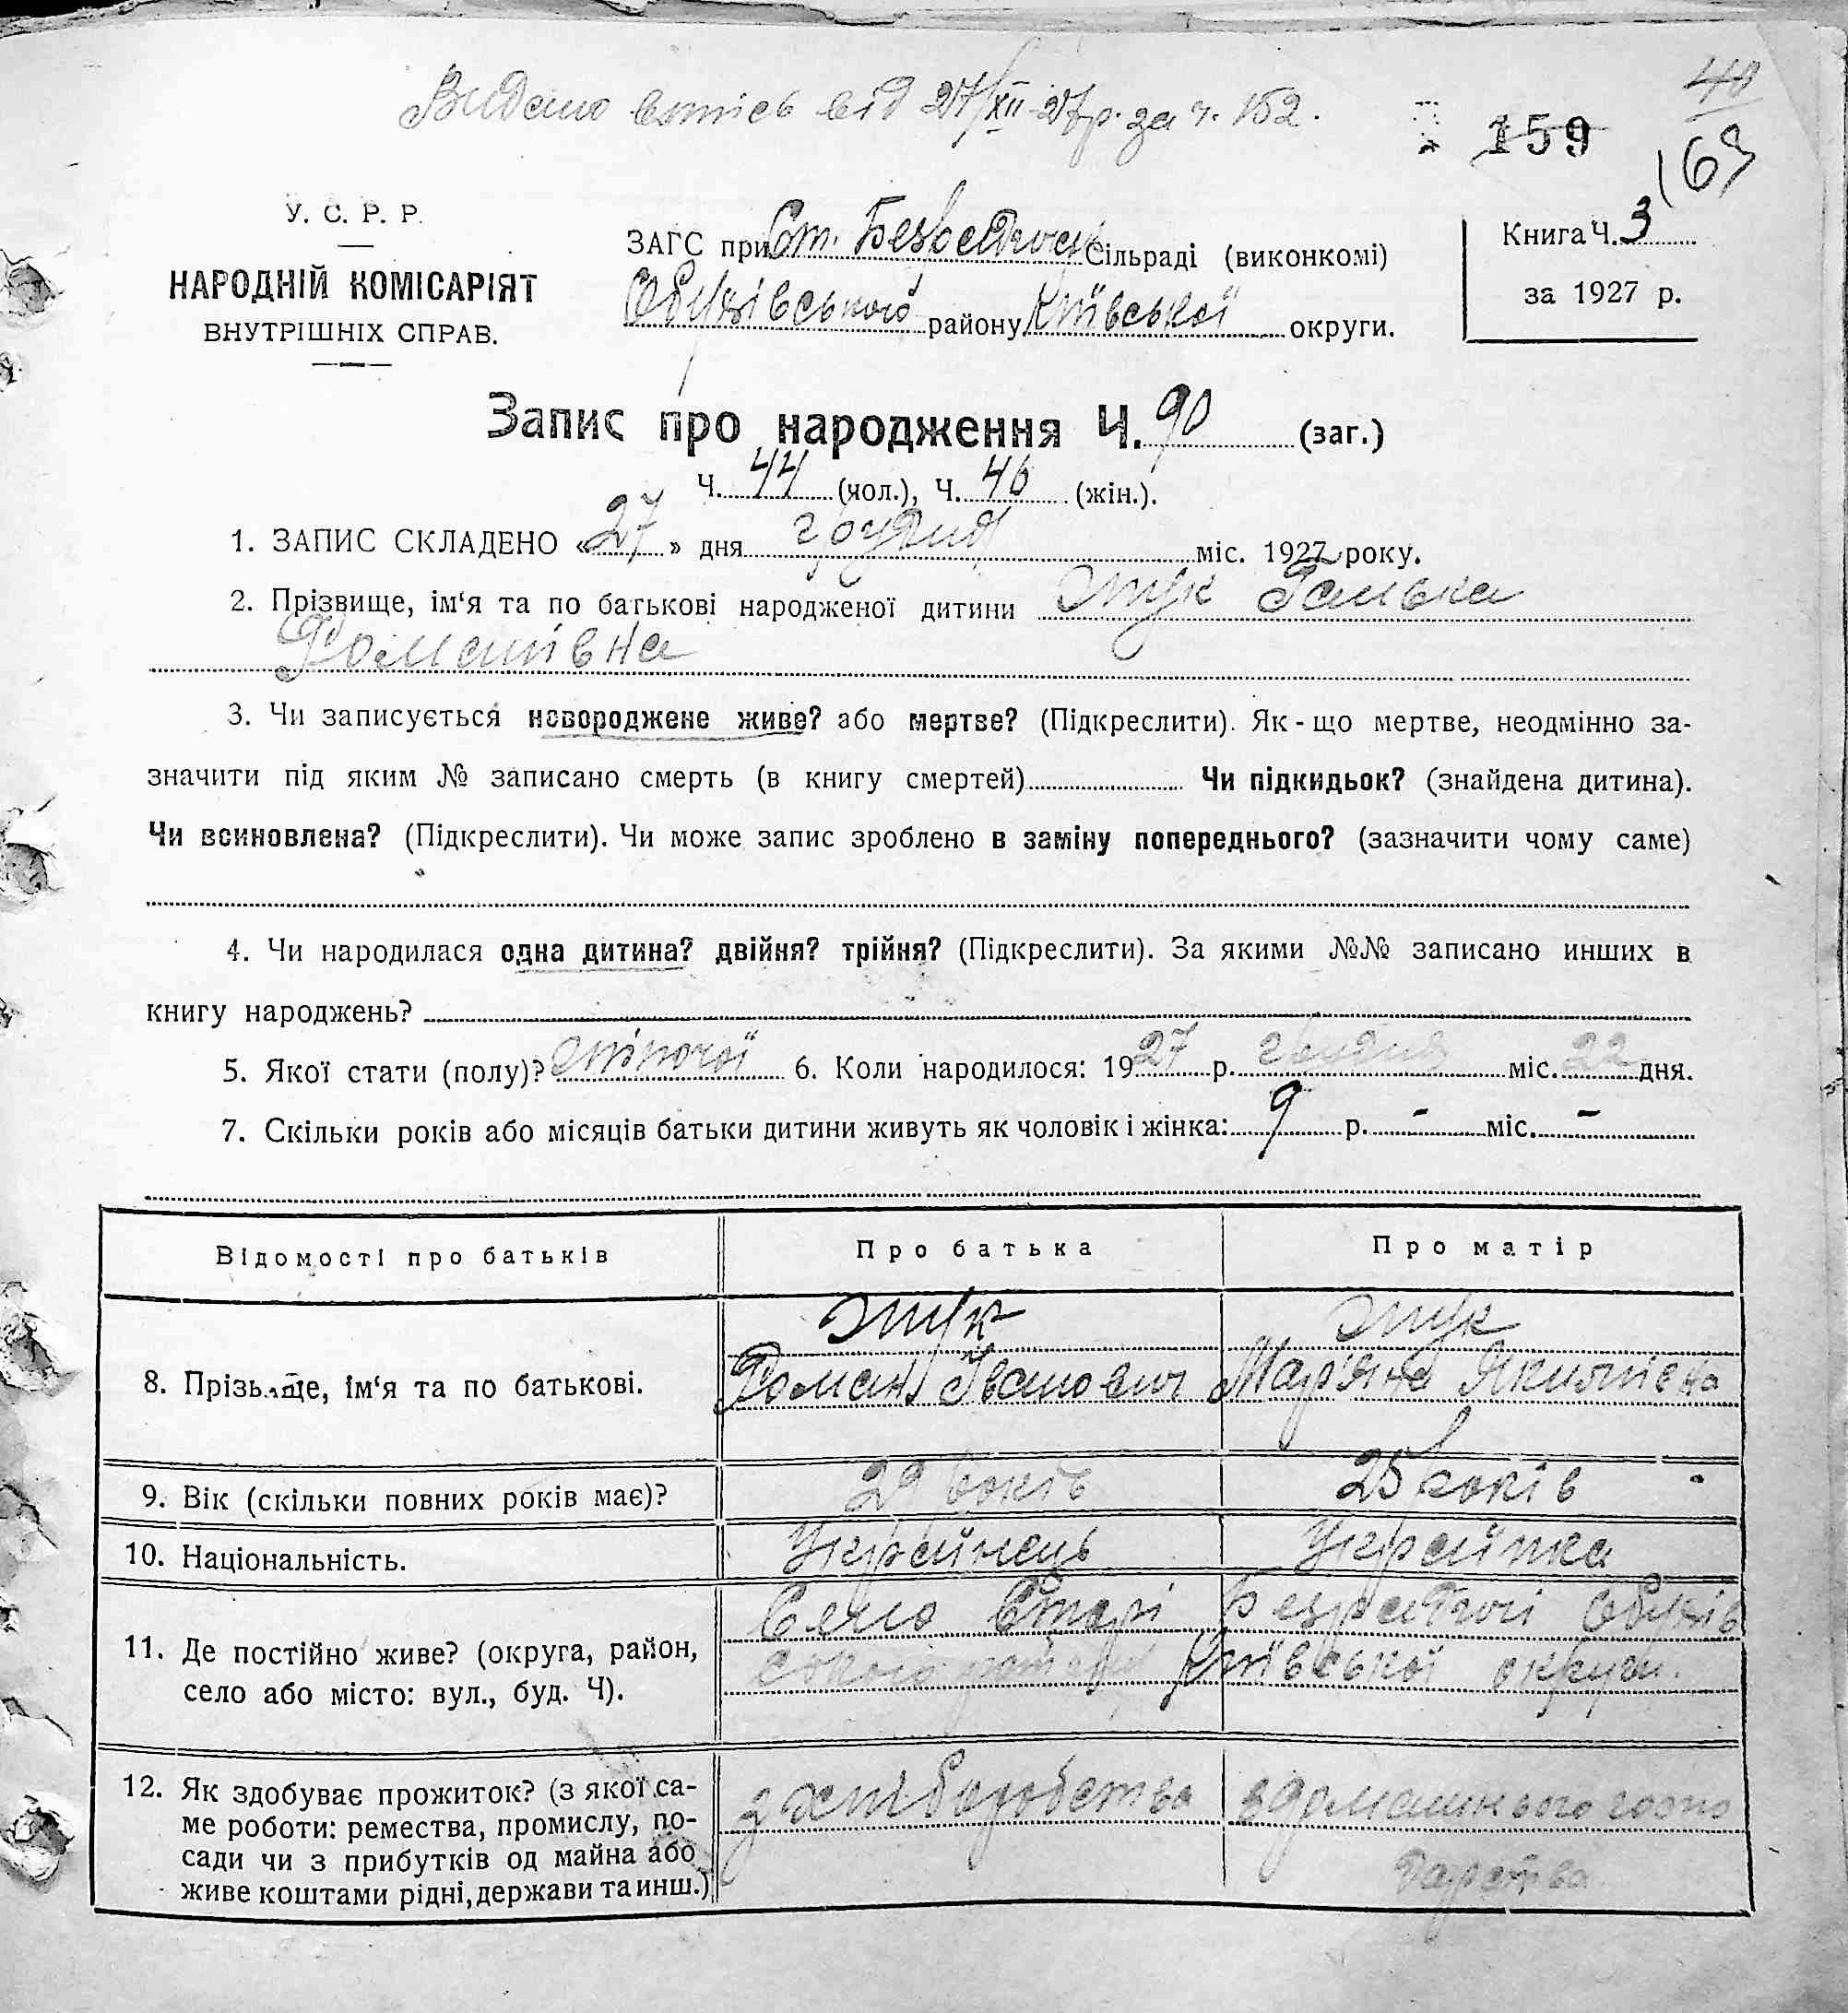 Видано витпсь від 27/XII-27р. за ч. 152.
40
159
169
У. С. Р. Р.
НАРОДНІЙ КОМІСАРІЯТ
ВНУТРІШНІХ СПРАВ.
ЗАГС при Ст. Безрадчоцькій Сільраді (виконкомі)
Обухівського району Київської округи.
Книга Ч. 3
за 1927 р.
Запис про народження Ч. 90 (заг.)
Ч. 44 (чол.), Ч. 46 (жін.).
1. ЗАПИС СКЛАДЕНО «27» дня грудня міс. 1927 року.
2. Прізвище, ім‘я та по батькові народженої дитини Жук Галька
Романівна
3. Чи записується новороджене живе? або мертве? (Підкреслити). Як-що мертве, неодмінно за-
значити під яким № записано смерть (в книгу смертей) Чи підкидьок? (знайдена дитина).
Чи всиновлена? (Підкреслити). Чи може запис зроблено в заміну попереднього? (зазначити чому саме)
4. Чи народилася одна дитина? двійня? трійня? (Підкреслити). За якими №№ записано инших в
книгу народжень?
5. Якої стати (полу)? жіночої 6. Коли народилося: 1927 р. грудня міс. 22 дня.
7. Скільки років або місяців батьки дитини живуть як чоловік і жінка: 9 р. - міс. -
Відомості про батьків Про батька Про матір
8. Прізвище, ім‘я та по батькові. Жук Жук
Роман Іванович Мар'яна Якимівна
9. Вік (скільки повних років має)? 29 років 25 років
10. Національність. Українець Українка
11. Де постійно живе? (округа, район,
село або місто: вул., буд. Ч).
Село Старі Безрадчі Обухів
ського району Київської округи.
12. Як здобуває прожиток? (з якої са-
ме роботи: ремества, промислу, по-
сади чи з прибутків од майна або
живе коштами рідні, держави та инш.)
з хліборобства з домашнього госпо
дарства